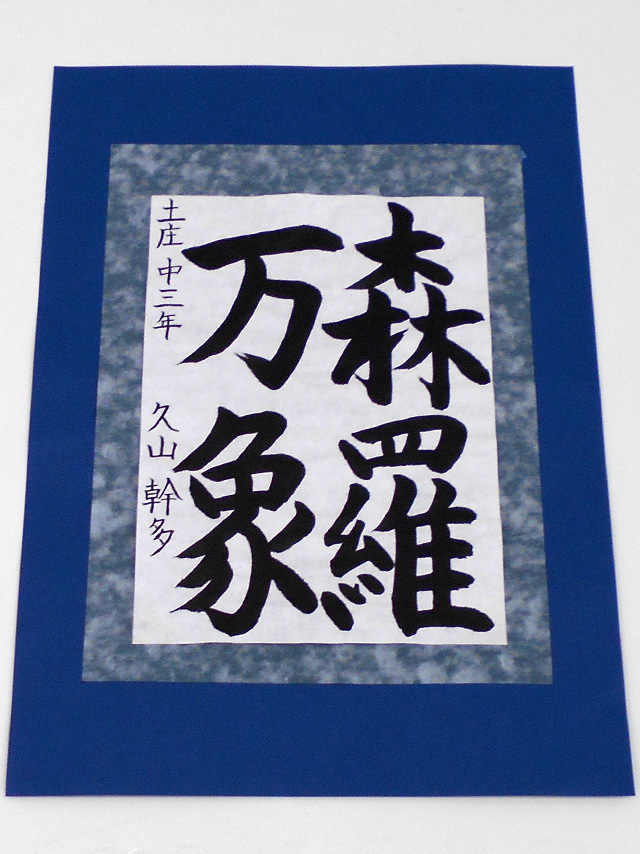 森羅
万象
土庄中三年 久山幹多